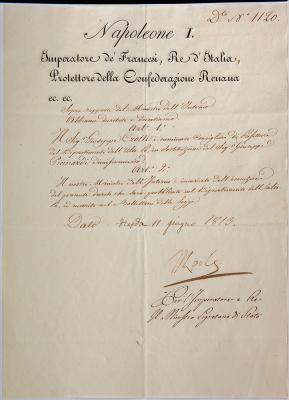 D.to N.o 1120.
Napoleone I.
Imperatore de' Francesi, Re d'Italia,
Protettore della Confederazione Renana
ec. ec.
Sopra rapporto del Ministro dell'Interno
Abbiamo decretato e decretiamo
Art. 1.o
Il Sig. Giuseppe è nominato Consigliere di Prefettura
del Dipartimento dell' in sostituzione del Sig. Giuseppe
Art. 2.o
Il nostro Ministro dell'Interno è incaricato dell'esecuzione
del presente decreto che sarà pubblicato nel Dipartimento dell'
ed inserito nel Bollettino delle Leggi.
Dato 11 giugno 1813.
Per l'Imperatore e Re
Il Ministro Segretario di Stato